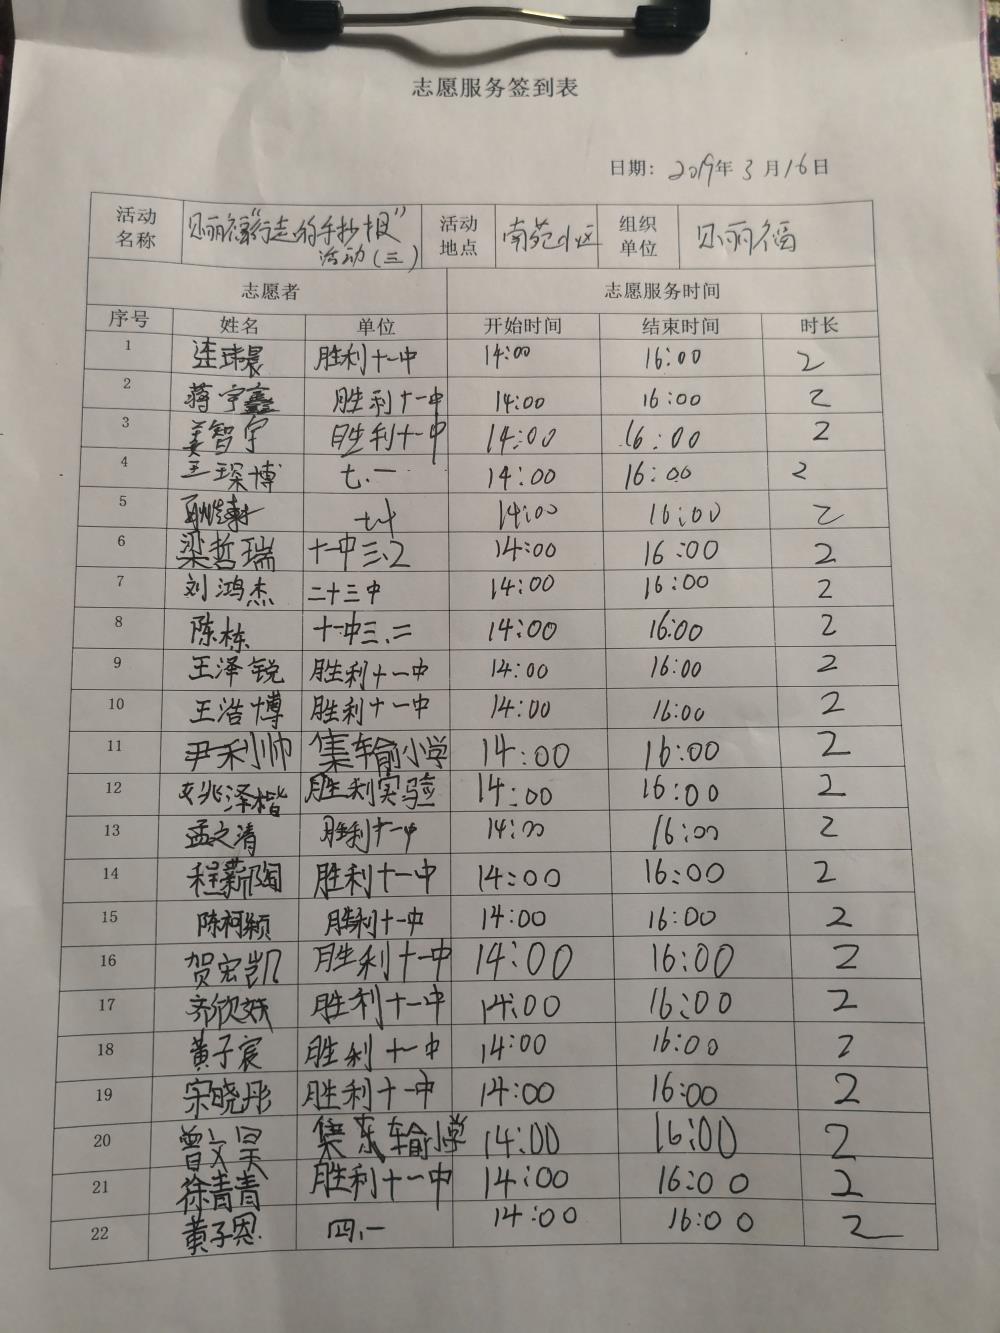 志愿服务签到表
日期: 2019年3月16日
活动名称 贝丽福"行走的手抄报"活动(三) 活动地点 南苑小区 组织单位 贝丽福
志愿者 志愿服务时间
序号 姓名 单位 开始时间 结束时间 时长
1 连玮晨 胜利十一中 14:00 16:00 2
2 蒋宇鑫 胜利十一中 14:00 16:00 2
3 姜智宇 胜利十一中 14:00 16:00 2
4 王琛博 七.一 14:00 16:00 2
5 14:00 16:00 2
6 梁哲瑞 十一中三.2 14:00 16:00 2
7 刘鸿杰 二十三中 14:00 16:00 2
8 陈栋 十一中三.二 14:00 16:00 2
9 王泽锐 胜利十一中 14:00 16:00 2
10 王浩博 胜利十一中 14:00 16:00 2
11 尹利帅 集输小学 14:00 16:00 2
12 姚泽楷 胜利实验 14:00 16:00 2
13 孟之清 胜利十一中 14:00 16:00 2
14 程薪陶 胜利十一中 14:00 16:00 2
15 陈柯颖 胜利十一中 14:00 16:00 2
16 贺宏凯 胜利十一中 14:00 16:00 2
17 齐欣妖 胜利十一中 14:00 16:00 2
18 黄子宸 胜利十一中 14:00 16:00 2
19 宋晓彤 胜利十一中 14:00 16:00 2
20 曾文昊 集东输小学 14:00 16:00 2
21 徐青青 胜利十一中 14:00 16:00 2
22 黄子恩 四.一 14:00 16:00 2